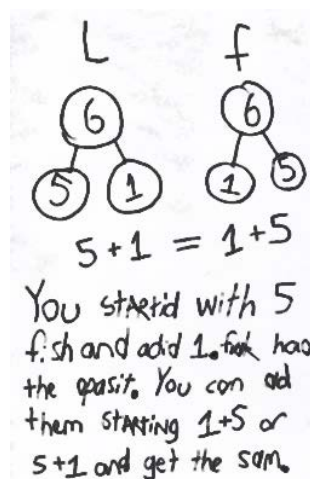 L f
6 6
5 1 1 5
5+1 = 1+5
You startid with 5
fish and adid 1. has
the opasit. You can ad
them starting 1+5 or
5+1 and get the sam.